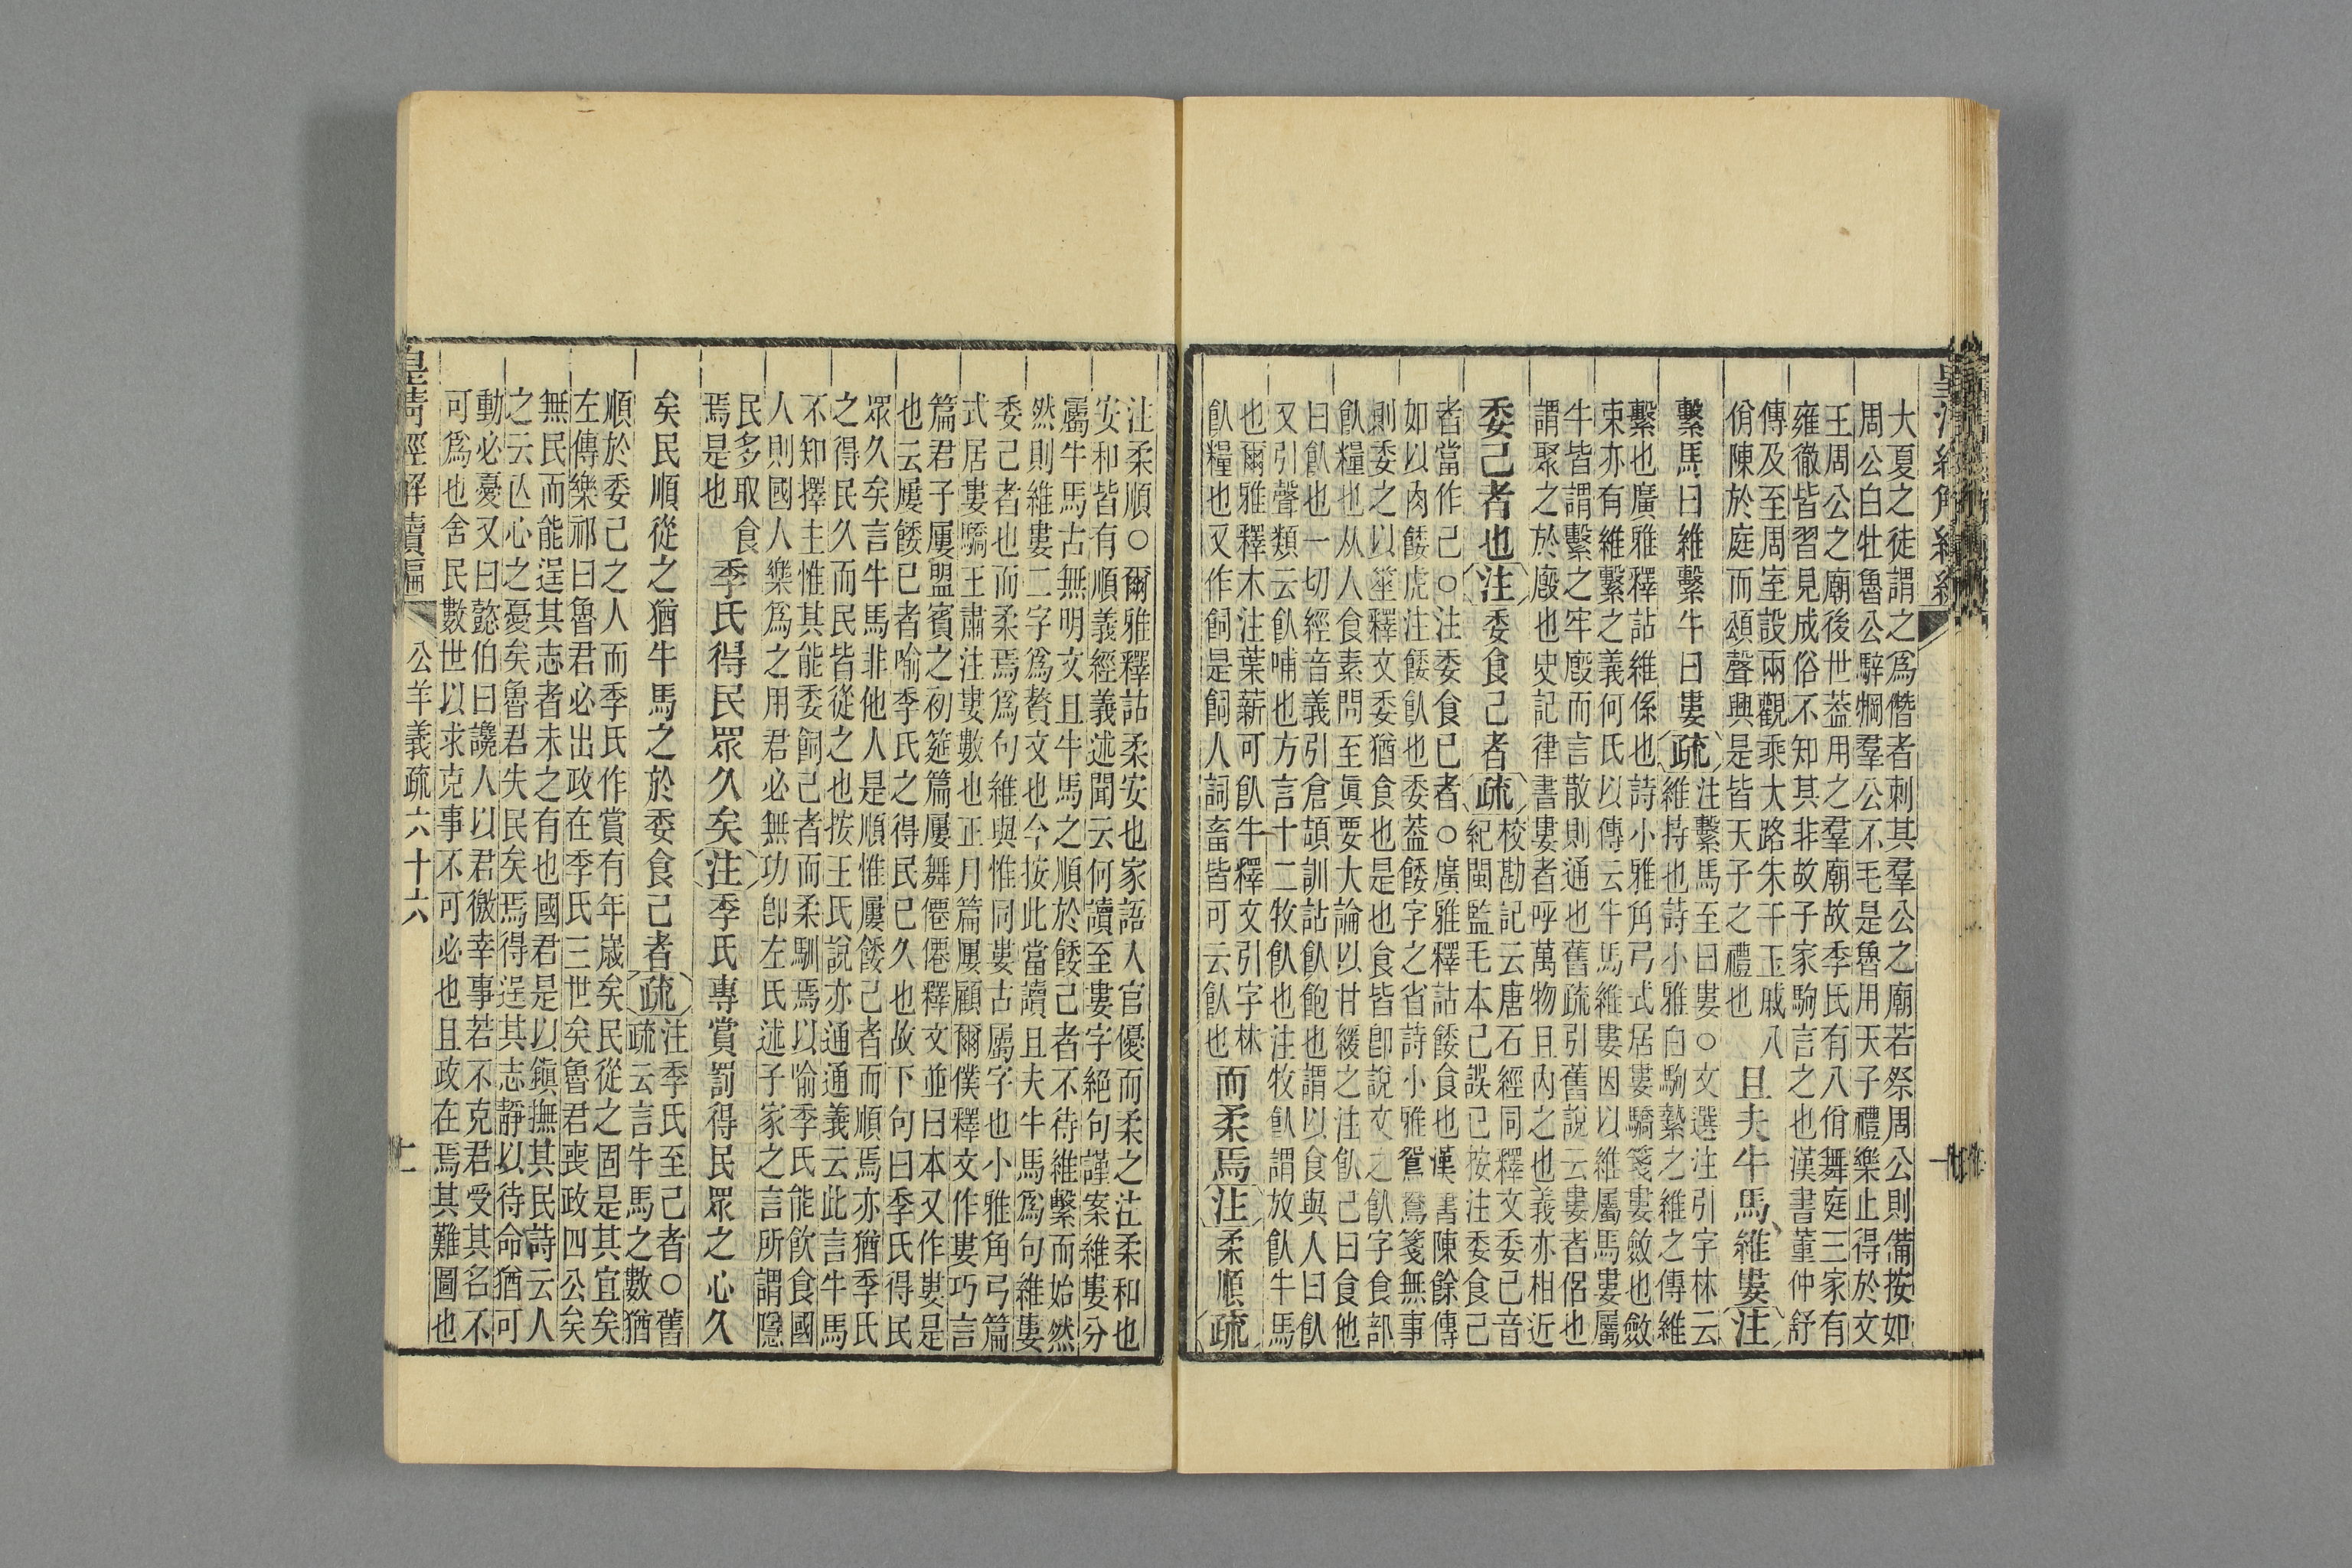 大夏之徒謂之爲僭者刺其羣公之廟若祭周公則備按如
周公白牡魯公騂犅羣公不毛是魯用天子禮樂止得於文
王周公之廟後世葢用之羣廟故季氏有八佾舞庭三家有
雍徹皆習見成俗不知其非故子家駒言之也漢書董仲舒
傳及至周室設兩觀乘大路朱干玉戚八
佾陳於庭而頌聲興是皆天子之禮也
且夫牛馬維婁注
繫馬曰維繫牛曰婁疏
注繫馬至曰婁○文選注引字林云
維持也詩小雅白駒縶之維之傳維
繫也廣雅釋詁維係也詩小雅角弓式居婁驕箋婁斂也斂
束亦有維繫之義何氏以傳云牛馬維婁因以維屬馬婁屬
牛皆謂繫之牢廏而言散則通也舊疏引舊說云婁者侶也
謂聚之於廏也史記律書婁者呼萬物且內之也義亦相近
委己者也注委食己者疏
校勘記云唐石經同釋文委己音
紀閩監毛本己誤已按注委食己
者當作己○注委食已者○廣雅釋詁餧食也漢書陳餘傳
如以肉餧虎注餧飤也委葢餧字之省詩小雅鴛鴦箋無事
則委之以莝釋文委猶食也是也食皆卽說文之飤字食部
飤糧也从人食素問至眞要大論以甘緩之注飤己曰食他
曰飤也一切經音義引倉頡訓詁飤飽也謂以食與人曰飤
又引聲類云飤哺也方言十二牧飤也注牧飤謂放飤牛馬
也爾雅釋木注葉薪可飤牛釋文引字林
飤糧也又作飼是飼人詞畜皆可云飤也
而柔焉注柔順疏
注柔順○爾雅釋詁柔安也家語人官優而柔之注柔和也
安和皆有順義經義述聞云何讀至婁字絕句謹案維婁分
屬牛馬古無明文且牛馬之順於餧己者不待維繫而始然
然則維婁二字爲贅文也今按此當讀且夫牛馬爲句維婁
委己者也而柔焉爲句維與惟同婁古屬字也小雅角弓篇
式居婁驕王肅注婁數也正月篇屢顧爾僕釋文作婁巧言
篇君子屢盟賓之初筵篇屢舞僊僊釋文並曰本又作婁是
也云屢餧已者喻季氏之得民已久也故下句曰季氏得民
眾久矣言牛馬非他人是順惟屢餧己者而順焉亦猶季氏
之得民久而民皆從之也按王氏說亦通通義云此言牛馬
不知擇主惟其能委飼己者而柔馴焉以喻季氏能飲食國
人則國人樂爲之用君必無功卽左氏述子家之言所謂隱
民多取食
焉是也
季氏得民眾久矣注季氏專賞罰得民眾之心久
矣民順從之猶牛馬之於委食己者疏
注季氏至己者○舊
疏云言牛馬之數猶
順於委己之人而季氏作賞有年歲矣民從之固是其宜矣
左傳樂祁曰魯君必出政在季氏三世矣魯君喪政四公矣
無民而能逞其志者未之有也國君是以鎮撫其民詩云人
之云亾心之憂矣魯君失民矣焉得逞其志靜以待命猶可
動必憂又曰懿伯曰讒人以君徼幸事若不克君受其名不
可爲也舍民數世以求克事不可必也且政在焉其難圖也
皇淸經解續編
公羊義疏六十六
十一